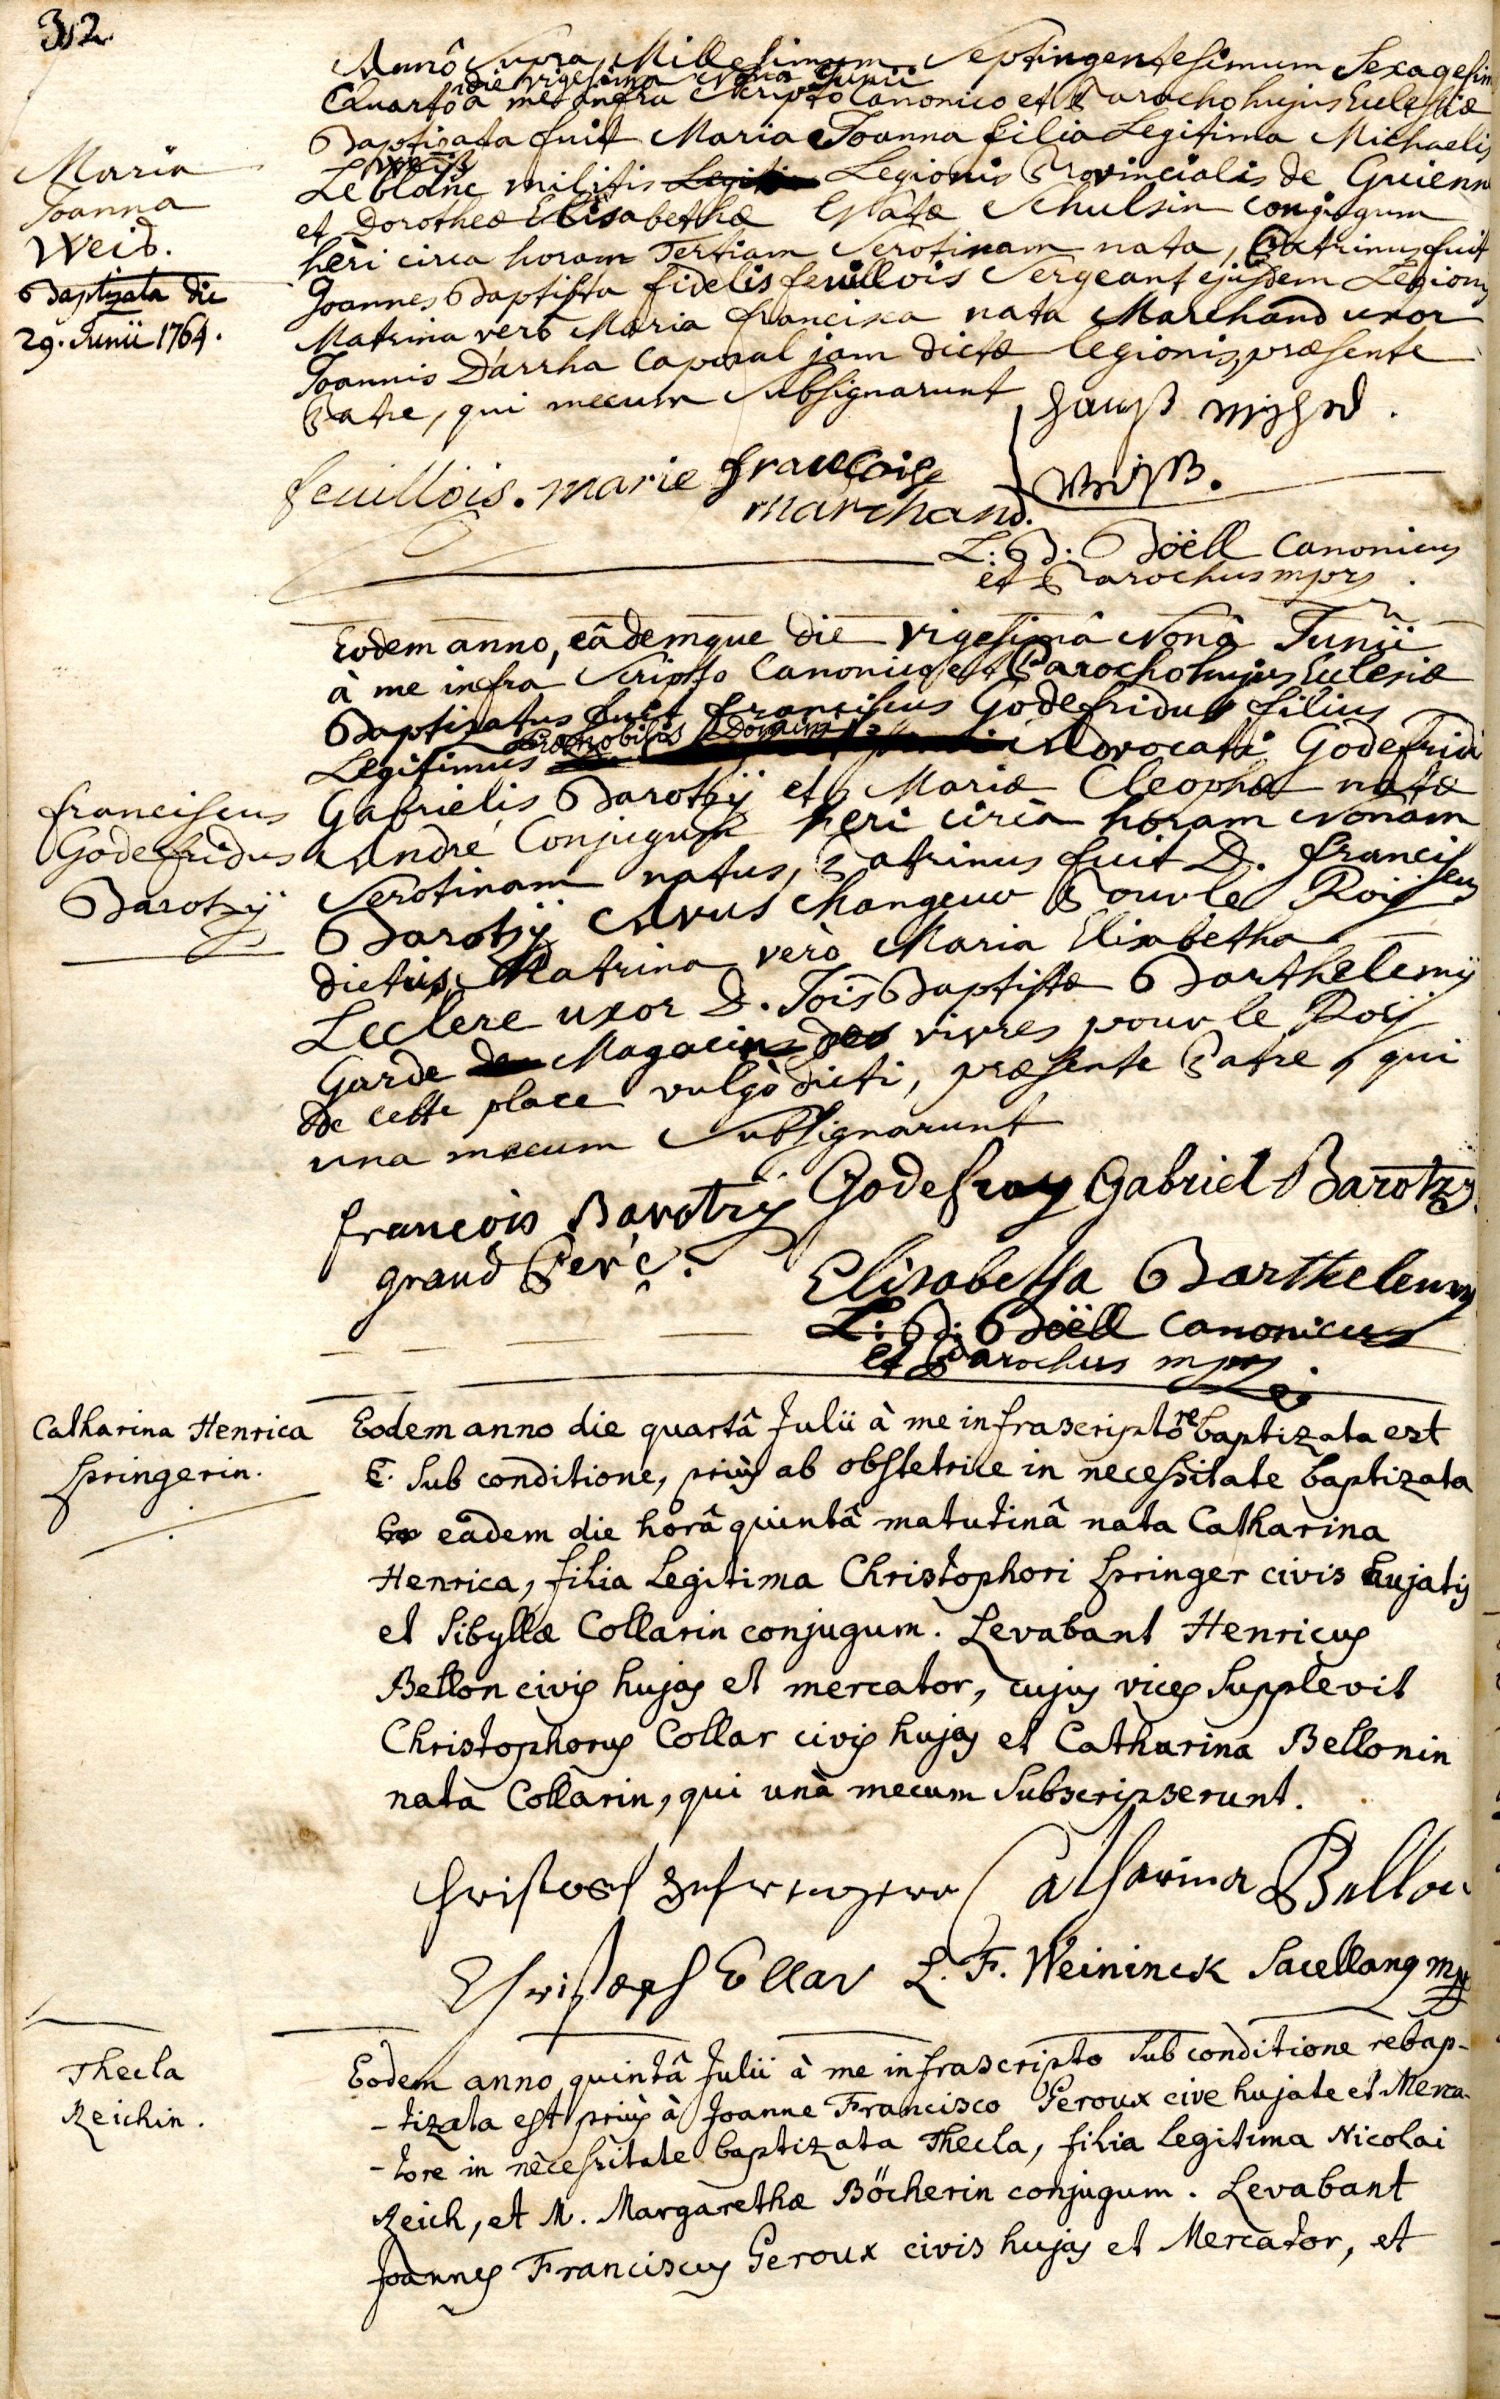 312
Annô Supra Millesimum Septingentesimum Sexagesim
die vigesima Nona Junii
Quarto à me infra Scripto Canonico et Parocho hujus Eclesiæ
Baptizata fuit Maria Joanna filia Legitima Michaelis
Weiß
Le blanc militis Legionis Provincialis de Guienn
et Dorotheæ Elisabethæ Natæ Schulsin conjugum
heri circa horam Tertiam Serotinam nata, Patrinus fuit
Joannes Baptista fidelis feuillois Sergeant ejusdem Legionis
Matrina verò Maria francisca nata Marchand uxor
Joannis D'arrha Caporal jam dictæ legionis, præsente
Patre, qui mecum Subsignarunt
Maria
Joanna
Weis.
Baptizata die
29. Junii 1764.
feuillois. marie francoise
marchand.
L: B: Böell Canonicus
et Parochus mpr
Eodem anno, eâdemque die vigesimâ Nonâ Junii
à me infra Scripto Canonico et Parocho hujus Eclesiæ
Baptizatus fuit franciscus Godefridus filius
Prænobilis Domini
Legitimus Advocati Godefridi
Gabrielis Barotzÿ et Mariæ Cleophæ natæ
André Conjugum heri circà horam Nonam
Serotinam natus, Patrinus fuit D. franciscus
Barotzÿ Avus Changeur Pour le Roij
dictus, Matrina verò Maria Elisabetha
Leclerc uxor D. Jois Baptistæ Barthelemij
Garde Magacin des vivres pour le Roij
de cette place vulgò dicti, præsente Patre, qui
una mecum Subsignarunt
franciscus
Godefridus
Barotzÿ
francois Barotzÿ Godefroy Gabriel Barotzy
grand Peré.
Elisabetha Barthelemy
L: B: Böell Canonicus
et Parochus mpr
Catharina Henrica
Springerin.
Eodem anno die quartâ Julii à me infrascripto rebaptizata est
C. Sub conditione, priùs ab obstetrice in necessitate baptizata
eâdem die horâ quintâ matutinâ nata Catharina
Henrica, filia Legitima Christophori Springer civis hujatis
et Sibyllæ Collarin conjugum. Levabant Henricus
Bellon civis hujas et mercator, cujus vices Supplevit
Christophorus Collar civis hujas et Catharina Bellonin
nata Collarin, qui unà mecum Subscripserunt.
Catharina Bellon
Christoph Collar L. F. Weininck Sacellanus mp
Thecla
Reichin.
Eodem anno quintâ Julii à me infrascripto Sub conditione rebap-
-tizata est priùs à Joanne Francisco Geroux cive hujate et Merca-
-tore in nècessitate baptizata Thecla, filia Legitima Nicolai
Reich, et M. Margarethæ Böcherin conjugum. Levabant
Joannes Franciscus Geroux civis hujas et Mercator, et